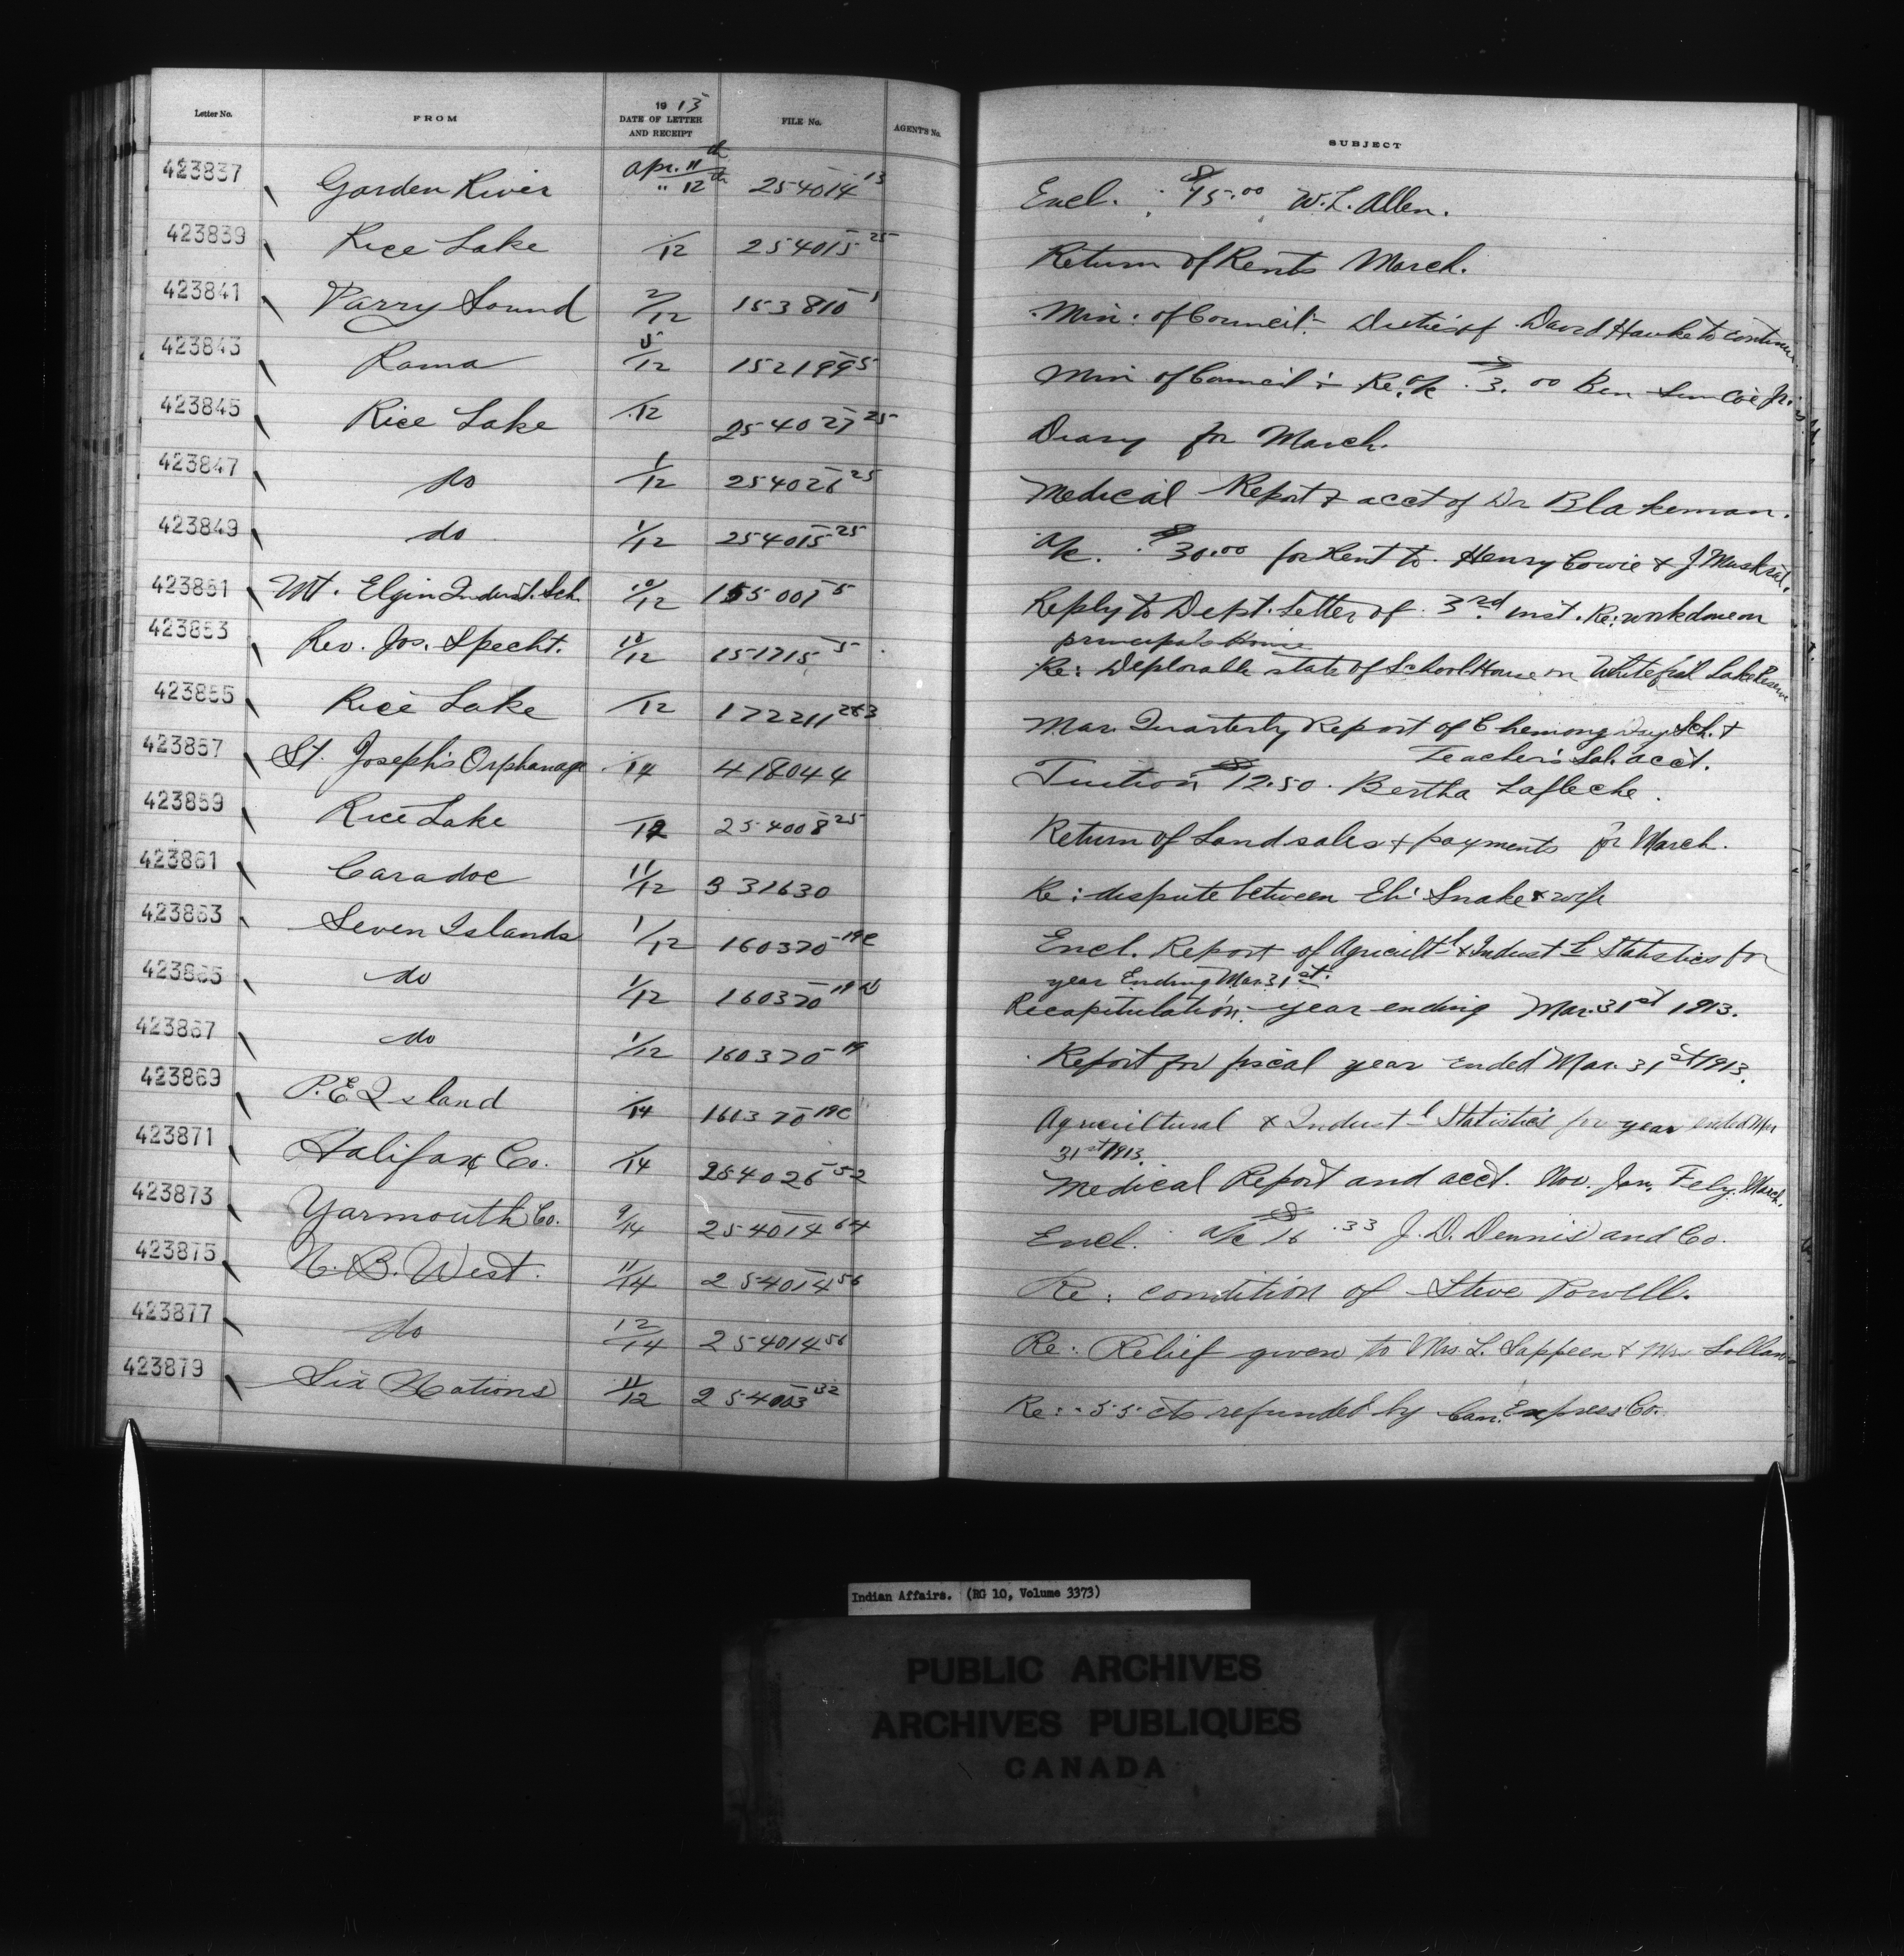 Letter No. FROM 1913 DATE OF LETTER AND RECEIPT FILE No. AGENTS No. SUBJECT
423837 Garden River Apr. 11th / " 12th 254014-13 Encl. $75.00 W. L. Allen.
423839 Rice Lake /12 254015-25 Return of Rents March.
423841 Parry Sound 2/12 153810-1 Min: of Council: Duties of David Hawke to continue
423843 Rama 5/12 152199-5 Min of Council: Re: a/c $3.00 Ben
423845 Rice Lake /12 254027-25 Diary for March.
423847 do 1/12 254026-25 Medical Report & acct of Dr Blakeman.
423849 do 1/12 254015-25 a/c. $30.00 for Rent to Henry Cowie & J Muskrat.
423851 Mt. Elgin Indust. Sch. 10/12 155001-5 Reply to Dept. Letter of 3rd inst. Re: work done on
principal's House
423853 Rev. Jos. Specht. 10/12 151715-5 Re: Deplorable state of School House on Whitefish Lake Reserve
423855 Rice Lake /12 172211-283 Mar. Quarterly Report of Chemong Day Sch. &
Teacher's Sal. acct.
423857 St. Joseph's Orphanage /14 418044 Tuition $12.50. Bertha Lafleche.
423859 Rice Lake /12 254008-25 Return of Land sales & payments for March.
423861 Caradoc 11/12 331630 Re: dispute between Eli Snake & wife
423863 Seven Islands 1/12 160370-19C Encl. Report of Agricultl & Industl Statistics for
year Ending Mar. 31st.
423865 do 1/12 160370-19 Recapitulation. year ending Mar. 31st 1913.
423867 do 1/12 160370-19 Report for fiscal year ended Mar. 31st 1913.
423869 P. E. Island /14 160370-19C Agricultural & Industl Statistics for year ended Mar
31st 1913.
423871 Halifax Co. /14 254026-52 Medical Report and acct. Nov. Jan. Feby. March.
423873 Yarmouth Co. 9/14 254014-64 Encl. a/c $16.33 J. D. Dennis and Co.
423875 N. B. West. 11/14 254014-56 Re: condition of Steve Powell.
423877 do 12/14 254014-56 Re: Relief given to Mrs. L. Sappeen & Mrs
423879 Six Nations 11/12 254003-132 Re: 55 cts refunded by Can. Express Co.
Indian Affairs. (RG 10, Volume 3373)
PUBLIC ARCHIVES
ARCHIVES PUBLIQUES
CANADA